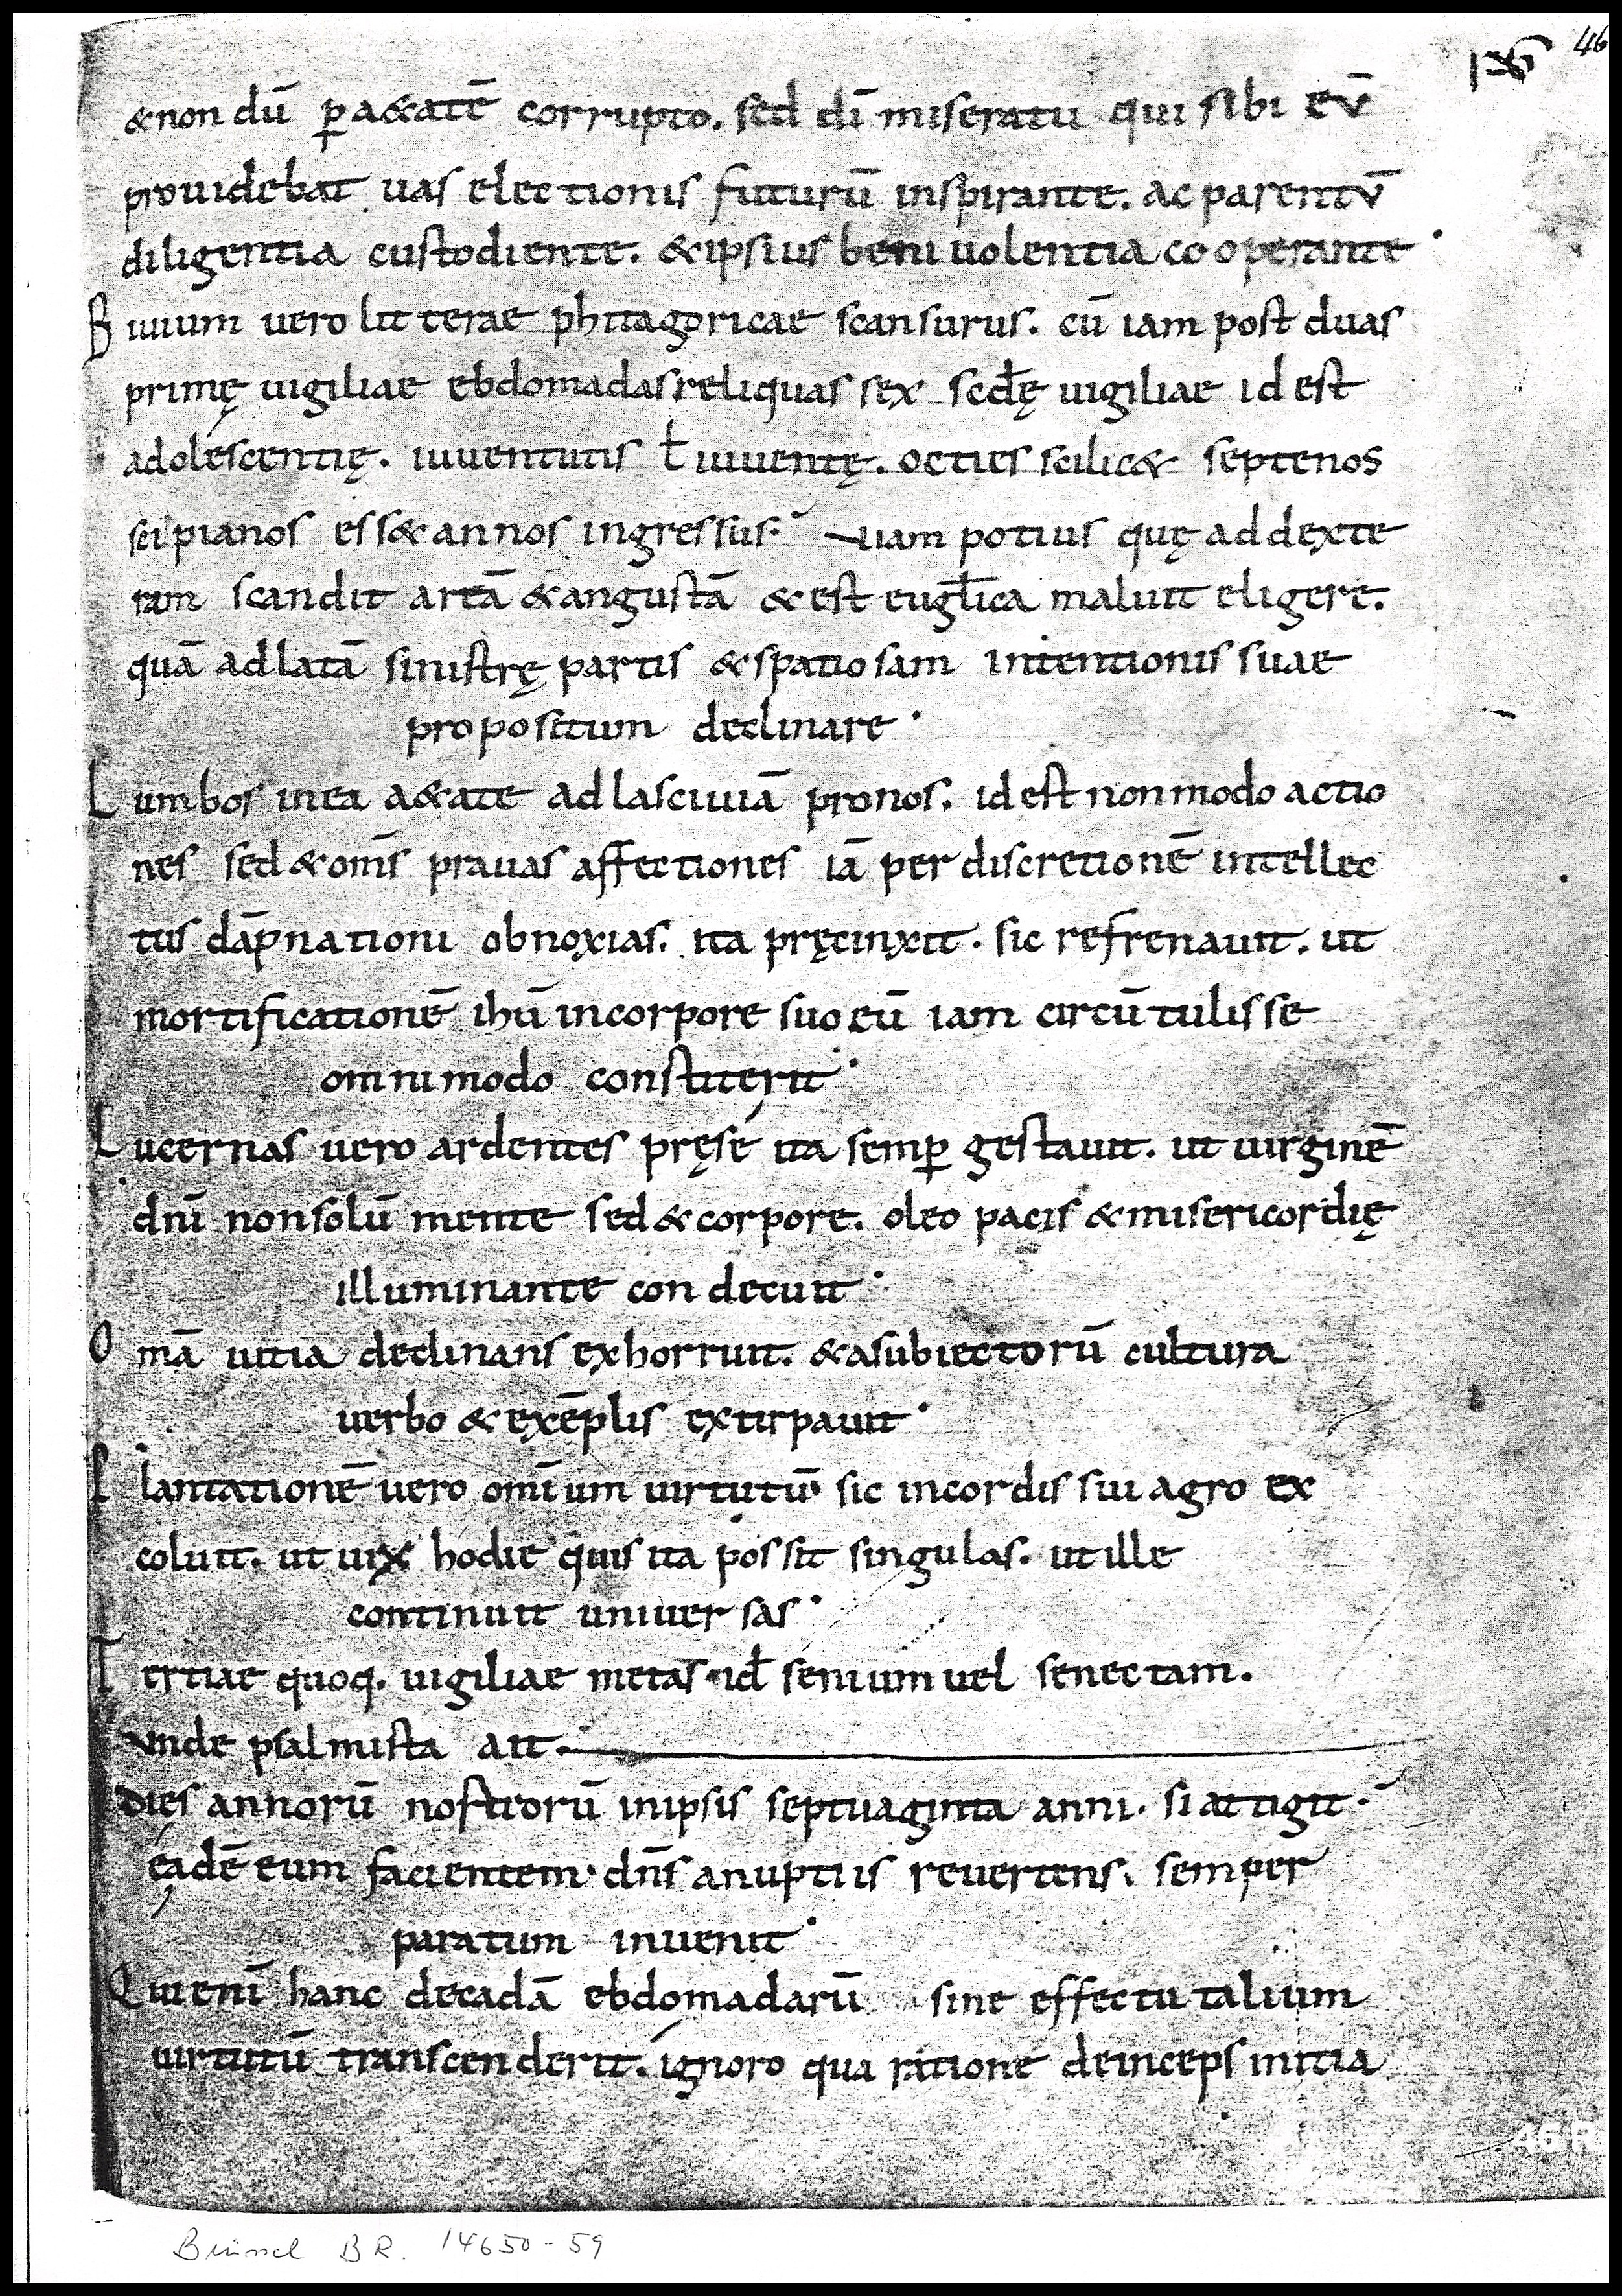 46
&non dū p̱ a&atē corrupto. sed dī miseratu qui sibi ev̄
prouidebat uas electionis futurū inspirante. ac parentv̄
diligentia custodiente. &ipsius beniuolentia cooperante·
Biuium uero litterae phitagoricae scansurus. cū iam post duas
primę uigiliae ebdomadas reliquas sex scd̄ę uigiliae id est
adolescentię. iuuentutis ł iuuentę. octies scilic& septenos
scipianos ess& annos ingressus. uiam potius quę ad dexte
ram scandit artā &angustā &est euglīca maluit eligere.
quā ad latā sinistrę partis &spatiosam intentionis suae
propositum declinare·
Lumbos in ea a&ate ad lasciuiā pronos. id est non modo actio
nes sed &om̄s prauas affectiones iā per discretionē intellec
tus dāpnationi obnoxias. ita pręcinxit. sic refrenauit. ut
mortificationē ihū in corpore suo eū iam circū tulisse
omnimodo constiterit·
Lucernas uero ardentes pręse ita semꝑ gestauit. ut uirginē
dnī non solū mente sed &corpore. oleo pacis &misericordię
illuminante condecuit·
Omā uitia declinans exhorruit. &asubiectorū cultura
uerbo &exēplis extirpauit·
Plantationē uero omīum uirtutū sic in cordis sui agro ex
coluit. ut uix hodie quis ita possit singulas. ut ille
continuit uniuersas·
Tertiae quoq. uigiliae metas id̄ senium uel senectam.
vnde psalmista ait.
Dies annorū nostrorū in ipsis septuaginta anni. si attigit.
eadē eum facientem· dn̄s anuptiis reuertens. semper
paratum inuenit·
Qui enī hanc decadā ebdomadarū sine effectu talium
uirtutū transcenderit. ignoro qua ratione deinceps initia
Brüssel BR. 14650-59